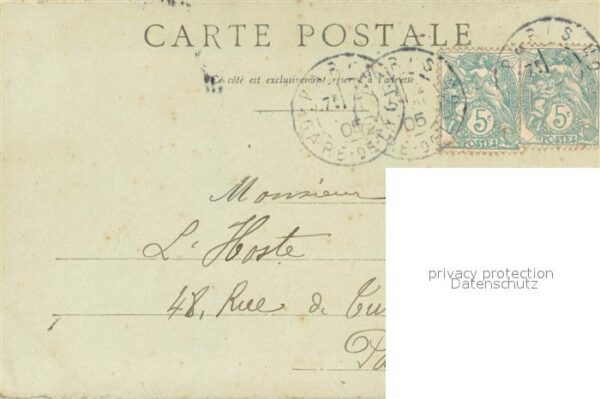 CARTE POSTALE
Ce côté est exclusivement réservé à l'adresse
PARIS
75
05
GARE
PARIS
05
PARIS
75
5c
POSTES
5c
POSTES
Monsieur
L'Hoste
48, Rue de
privacy protection
Datenschutz